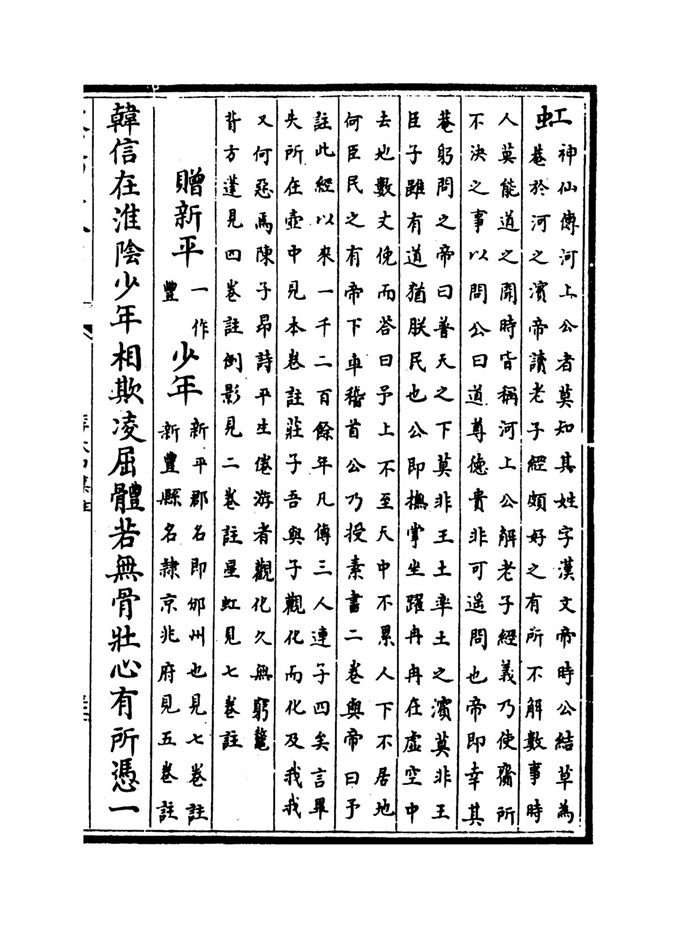 虹
神仙傳河上公者莫知其姓字漢文帝時公結草為
菴於河之濱帝讀老子經頗好之有所不解數事時
人莫能道之聞時皆稱河上公解老子經義乃使齎所
不決之事以問公曰道尊德貴非可遥問也帝即幸其
菴躬問之帝曰普天之下莫非王土率土之濱莫非王
臣子雖有道猶朕民也公即撫掌坐躍冉冉在虛空中
去地數丈俛而答曰予上不至天中不累人下不居地
何臣民之有帝下車稽首公乃授素書二卷與帝曰予
註此經以來一千二百餘年凡傳三人連子四矣言畢
失所在壺中見本卷註莊子吾與子觀化而化及我我
又何惡焉陳子昂詩平生倦游者觀化久無窮鼇
背方蓬見四卷註倒影見二卷註星虹見七卷註
贈新平一作豐少年
新平郡名即邠州也見七卷註
新豐縣名隸京兆府見五卷註
韓信在淮陰少年相欺凌屈體若無骨壯心有所憑一